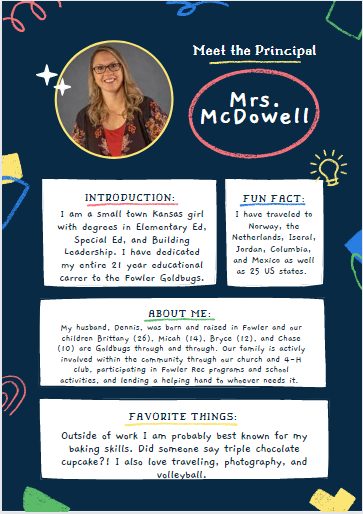 Meet the Principal
Mrs.
McDowell
INTRODUCTION:
I am a small town Kansas girl
with degrees in Elementary Ed,
Special Ed, and Building
Leadership. I have dedicated
my entire 21 year educational
carrer to the Fowler Goldbugs.
FUN FACT:
I have traveled to
Norway, the
Netherlands, Iseral,
Jordan, Columbia,
and Mexico as well
as 25 US states.
ABOUT ME:
My husband, Dennis, was born and raised in Fowler and our
children Brittany (26), Micah (14), Bryce (12), and Chase
(10) are Goldbugs through and through. Our family is activly
involved within the community through our church and 4-H
club, participating in Fowler Rec programs and school
activities, and lending a helping hand to whoever needs it.
FAVORITE THINGS:
Outside of work I am probably best known for my
baking skills. Did someone say triple chocolate
cupcake?! I also love traveling, photography, and
volleyball.